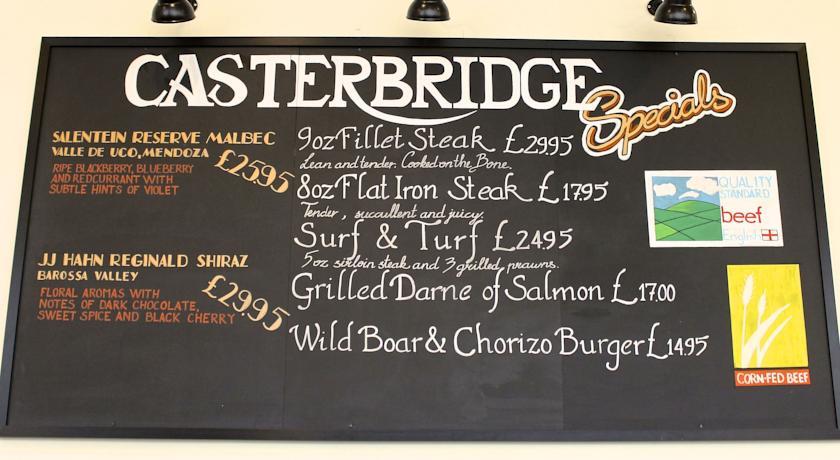 CASTERBRIDGE
Specials
SALENTEIN RESERVE MALBEC
VALLE DE UCO, MENDOZA
£25.95
RIPE BLACKBERRY, BLUEBERRY
AND REDCURRANT WITH
SUBTLE HINTS OF VIOLET
JJ HAHN REGINALD SHIRAZ
BAROSSA VALLEY
£29.95
FLORAL AROMAS WITH
NOTES OF DARK CHOCOLATE,
SWEET SPICE AND BLACK CHERRY
9oz Fillet Steak £29.95
Lean and tender. Cooked on the Bone.
8oz Flat Iron Steak £17.95
Tender, succullent and juicy.
Surf & Turf £24.95
5oz sirloin steak and 3 grilled prawns.
Grilled Darne of Salmon £17.00
Wild Boar & Chorizo Burger £14.95
QUALITY
STANDARD
beef
English
CORN-FED BEEF